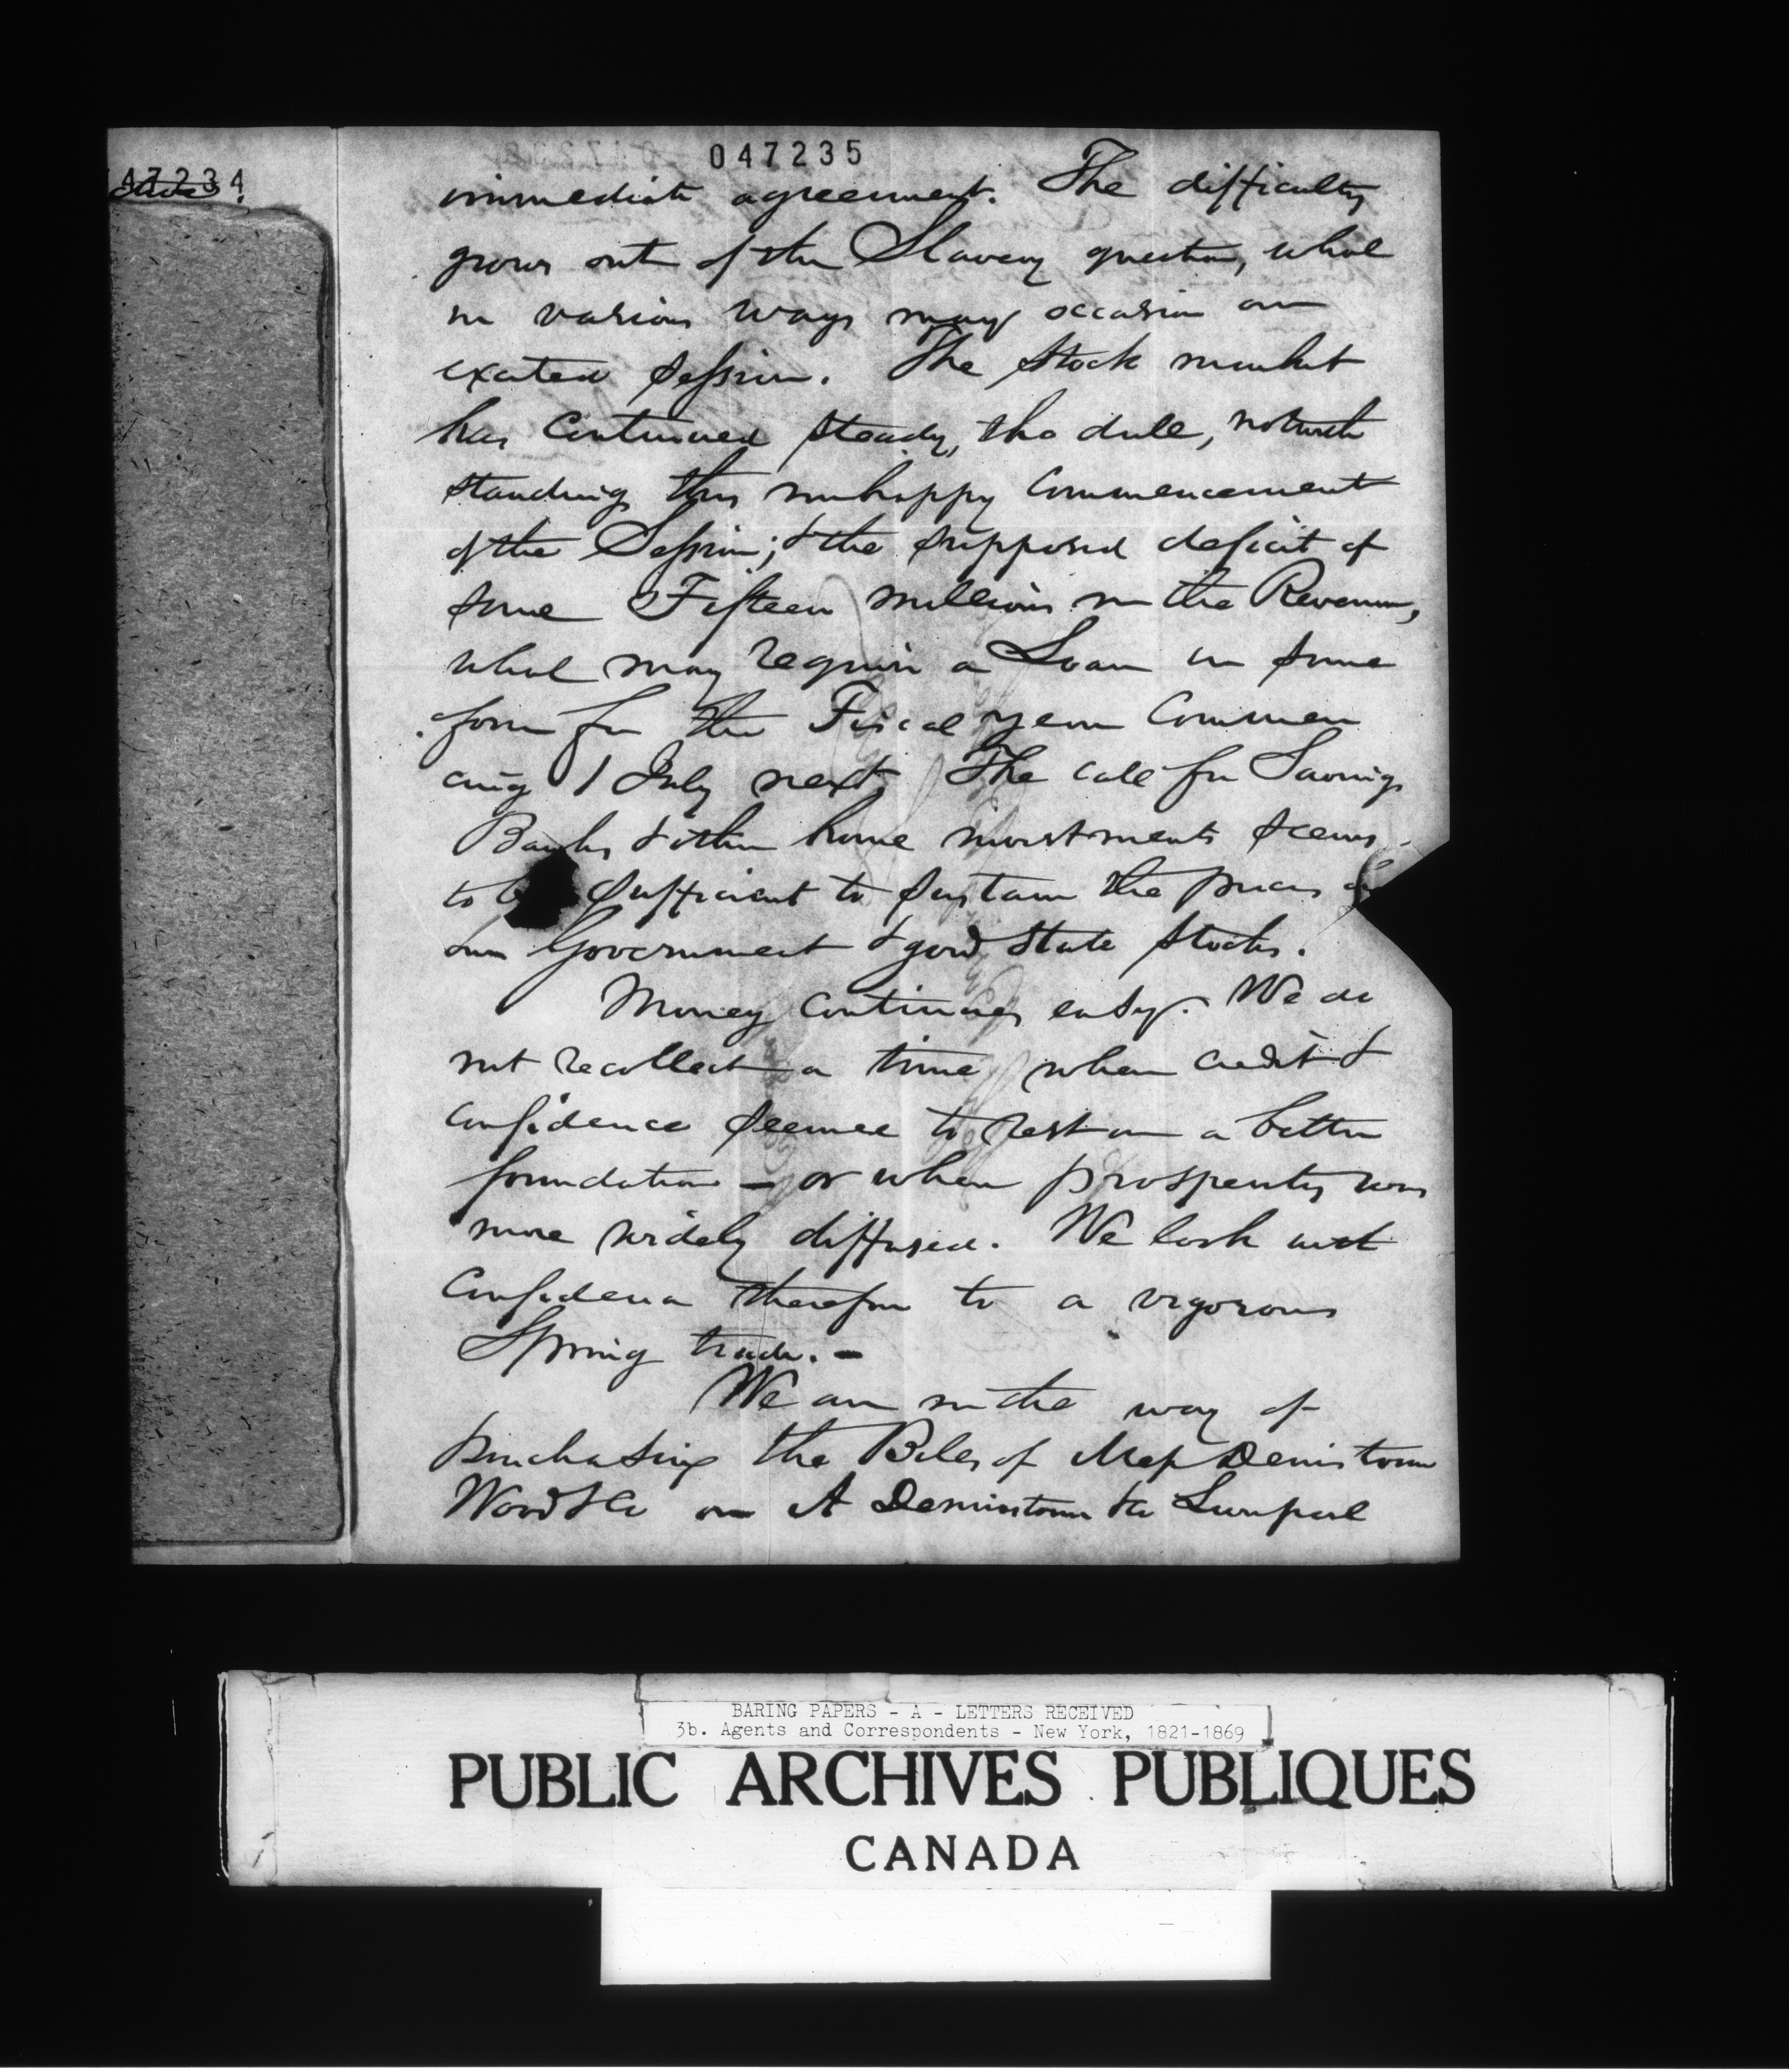 47234
047235
immediate agreement. The difficulty
grows out of the Slavery question, which
in various ways may occasion an
excited Session. The Stock market
has Continued steady, tho dull, notwith
standing this unhappy Commencement
of the Session; & the supposed deficit of
some Fifteen millions in the Revenue,
which may require a Loan in some
form for the Fiscal year Commen
cing 1 July next. The call for Savings
Banks & other home investments seems
to be sufficient to sustain the prices of
our Government & good State Stocks.
Money continues easy. We do
not recollect a time when credit &
confidence seemed to rest on a better
foundation - or when prosperity was
more widely diffused. We look with
Confidence therefore to a vigorous
Spring trade. -
We are in the way of
purchasing the Bills of Mess Dennistoun
Wood & Co on A Dennistoun & Co Liverpool
BARING PAPERS - A - LETTERS RECEIVED
3b. Agents and Correspondents - New York, 1821-1869
PUBLIC ARCHIVES PUBLIQUES
CANADA